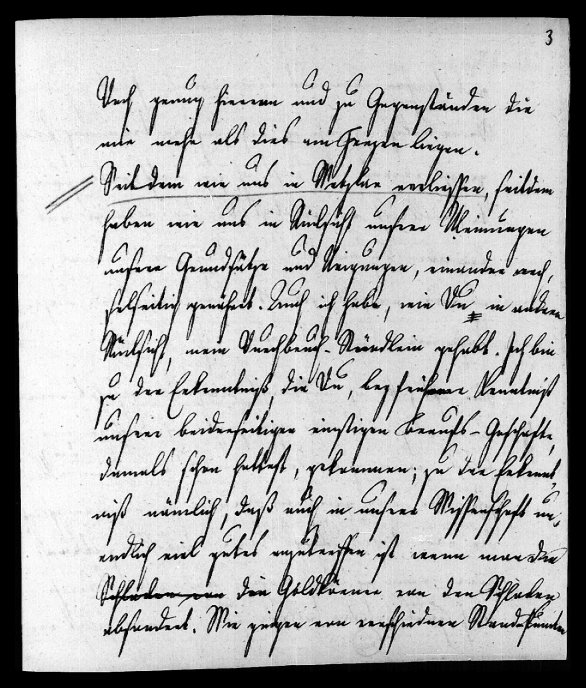 3
Doch genug hievon und zu Gegenständen die
mir mehr als dies am Herzen liegen.
Seitdem wir uns in Wetzlar verliessen, seitdem
haben wir uns in Rücksicht unsrer Meinungen
unsrer Grundsätze und Neigungen, einander wech,
selseitig genähert. Auch ich habe, wie Du, in andrer
Rücksicht, mein Durchbruch-Stündlein gehabt. Ich bin
zu der Erkenntniß, die Du, bey früherer Kenntniß
unsrer beiderseitigen einstigen Berufs-Geschäfte,
damals schon hattest, gekommen; zu der Erkennt,
niß nämlich, daß auch in unsrer Wissenschaft un,
endlich viel gutes anzutreffen ist wenn man den
Schlacken von die Goldkörner von den Schlacken
absondert. Wir gingen von verschiednen Stand-Punkten